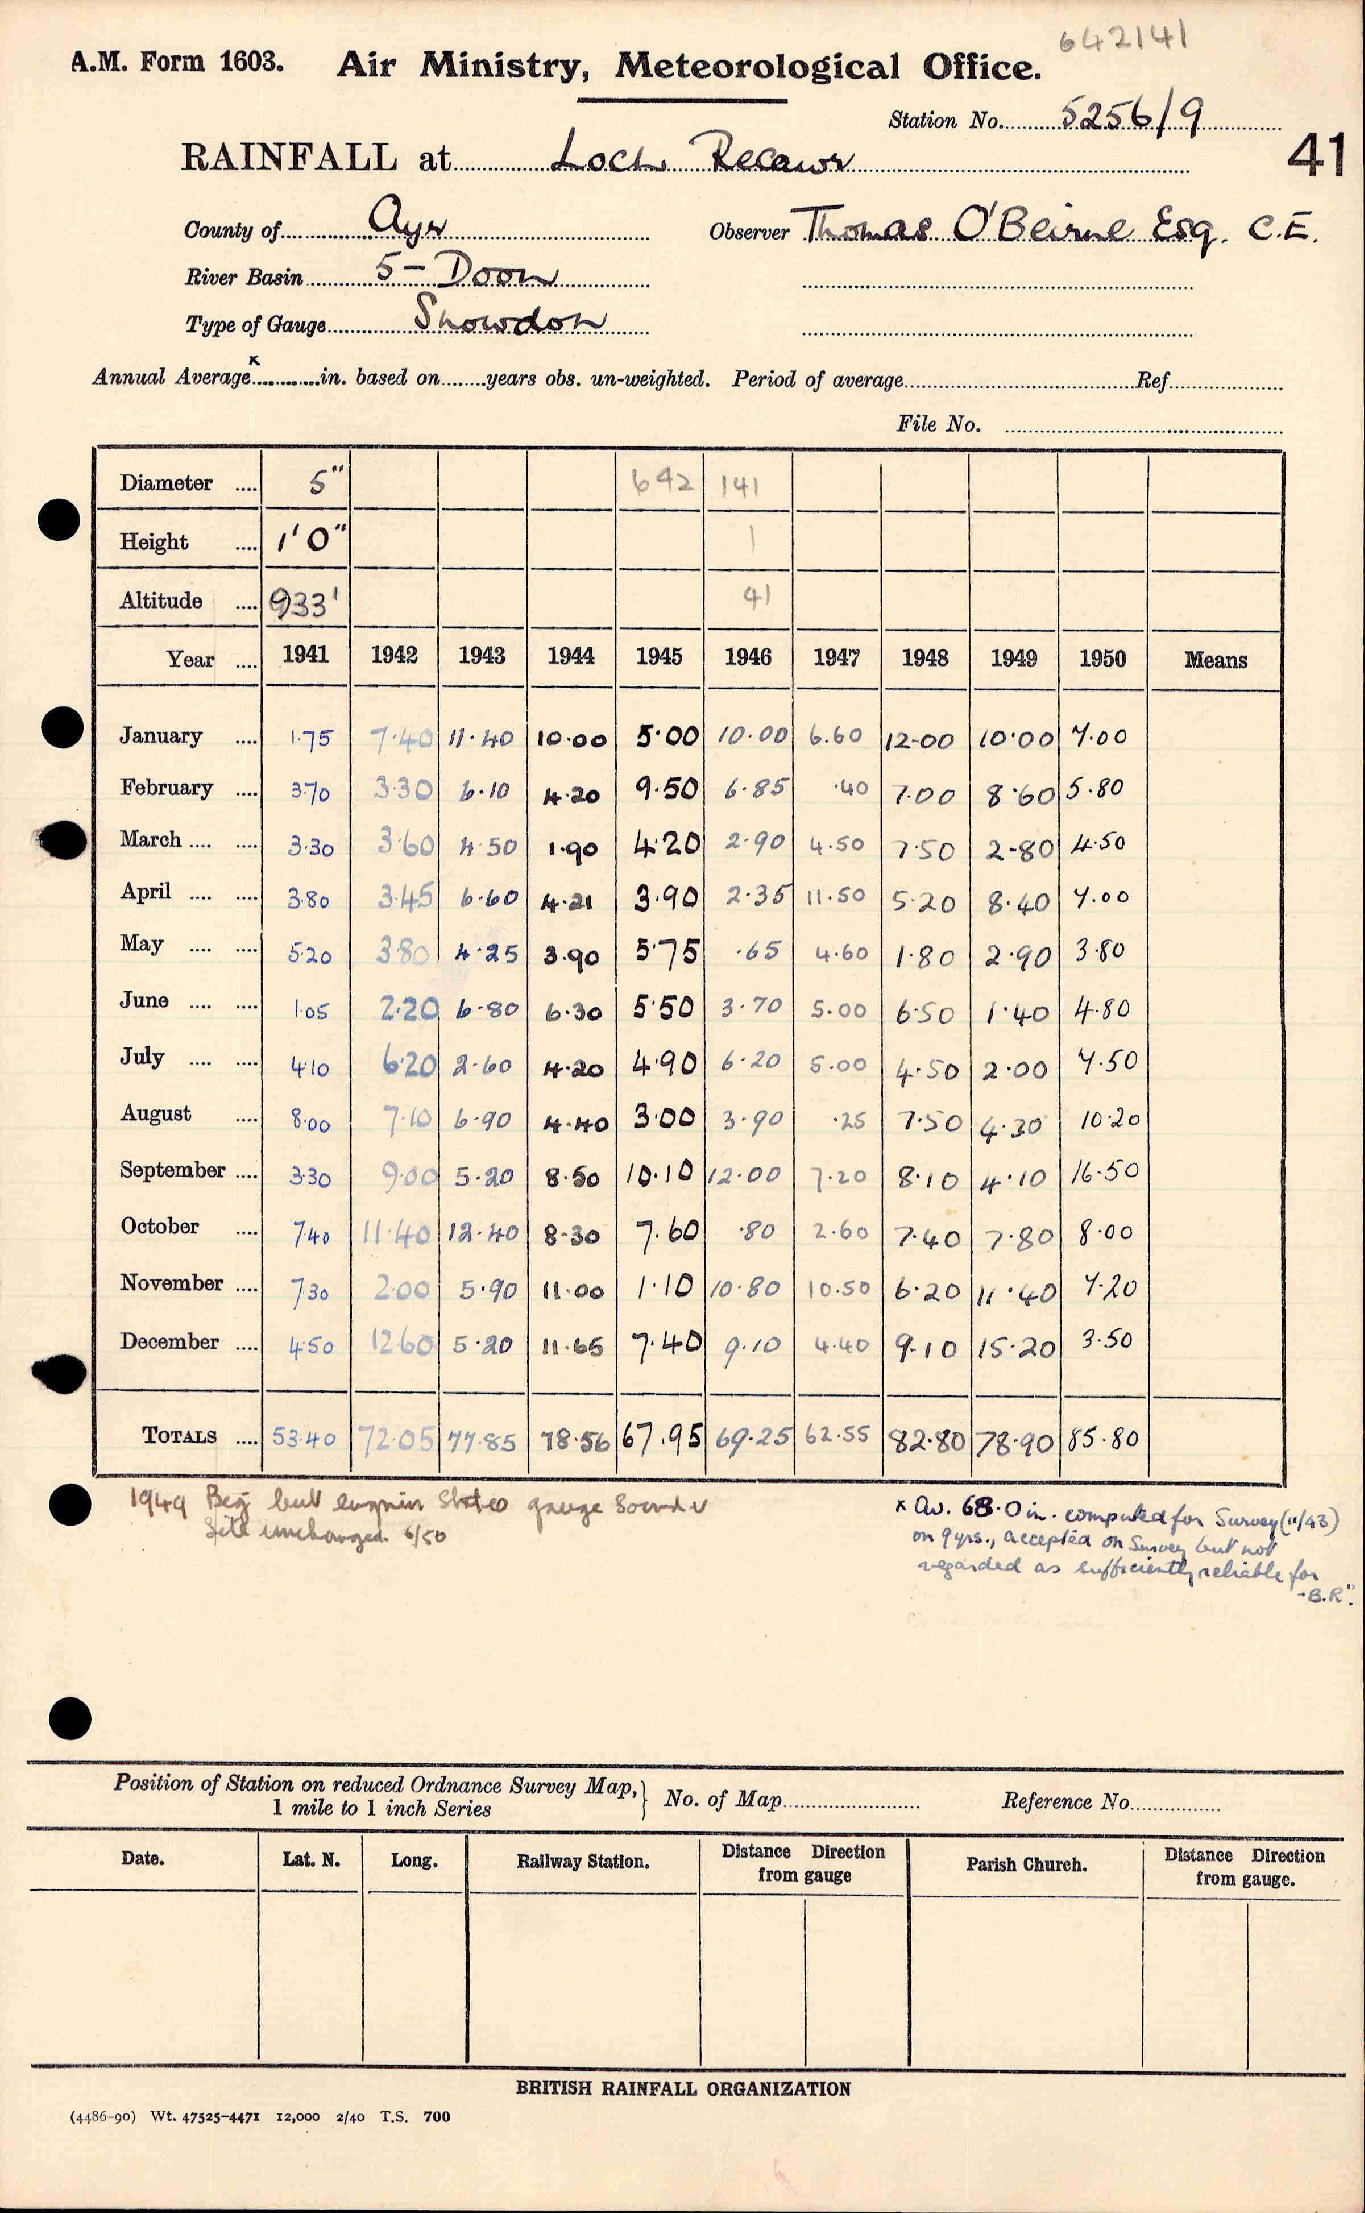 642141
A.M. Form 1603. Air Ministry, Meteorological Office.
Station No. 5256/9
41
RAINFALL at Loch Recawr
County of Ayr Observer Thomas O'Beirne Esq. C.E.
River Basin 5 - Doon
Type of Gauge Snowdon
Annual Average x in. based on years obs. un-weighted. Period of average Ref.
File No.
Diameter 5" 642 141
Height 1'0" 1
Altitude 933' 41
Year 1941 1942 1943 1944 1945 1946 1947 1948 1949 1950 Means
January 1.75 7.40 11.40 10.00 5.00 10.00 6.60 12.00 10.00 7.00
February 3.70 3.30 6.10 4.20 9.50 6.85 .40 7.00 8.60 5.80
March 3.30 3.60 4.50 1.90 4.20 2.90 4.50 7.50 2.80 4.50
April 3.80 3.45 6.60 4.21 3.90 2.35 11.50 5.20 8.40 7.00
May 5.20 3.80 4.25 3.90 5.75 .65 4.60 1.80 2.90 3.80
June 1.05 2.20 6.80 6.30 5.50 3.70 5.00 6.50 1.40 4.80
July 4.10 6.20 2.60 4.20 4.90 6.20 5.00 4.50 2.00 7.50
August 8.00 7.10 6.90 4.40 3.00 3.90 .25 7.50 4.30 10.20
September 3.30 9.00 5.20 8.50 10.10 12.00 7.20 8.10 4.10 16.50
October 7.40 11.40 12.40 8.30 7.60 .80 2.60 7.40 7.80 8.00
November 7.30 2.00 5.90 11.00 1.10 10.80 10.50 6.20 11.40 7.20
December 4.50 12.60 5.20 11.65 7.40 9.10 4.40 9.10 15.20 3.50
TOTALS 53.40 72.05 77.85 78.56 67.95 69.25 62.55 82.80 78.90 85.80
1949 but states gauge sound &
Site unchanged. 6/50
x Av. 68.0 in. computed for Survey (11/43)
on 9 yrs., accepted on Survey but not
regarded as sufficiently reliable for
"B.R".
Position of Station on reduced Ordnance Survey Map, } No. of Map Reference No.
1 mile to 1 inch Series
Date. Lat. N. Long. Railway Station. Distance Direction from gauge Parish Church. Distance Direction from gauge.
BRITISH RAINFALL ORGANIZATION
(4486-90) Wt. 47525-4471 12,000 2/40 T.S. 700